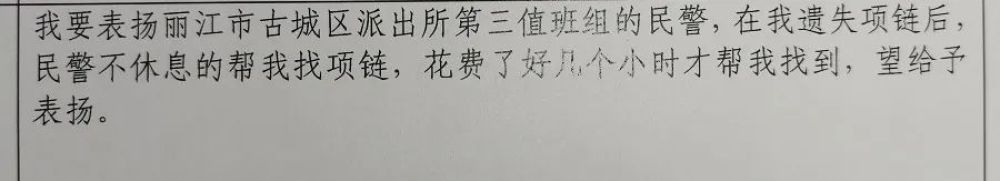 我要表扬丽江市古城区派出所第三值班组的民警，在我遗失项链后，
民警不休息的帮我找项链，花费了好几个小时才帮我找到，望给予
表扬。